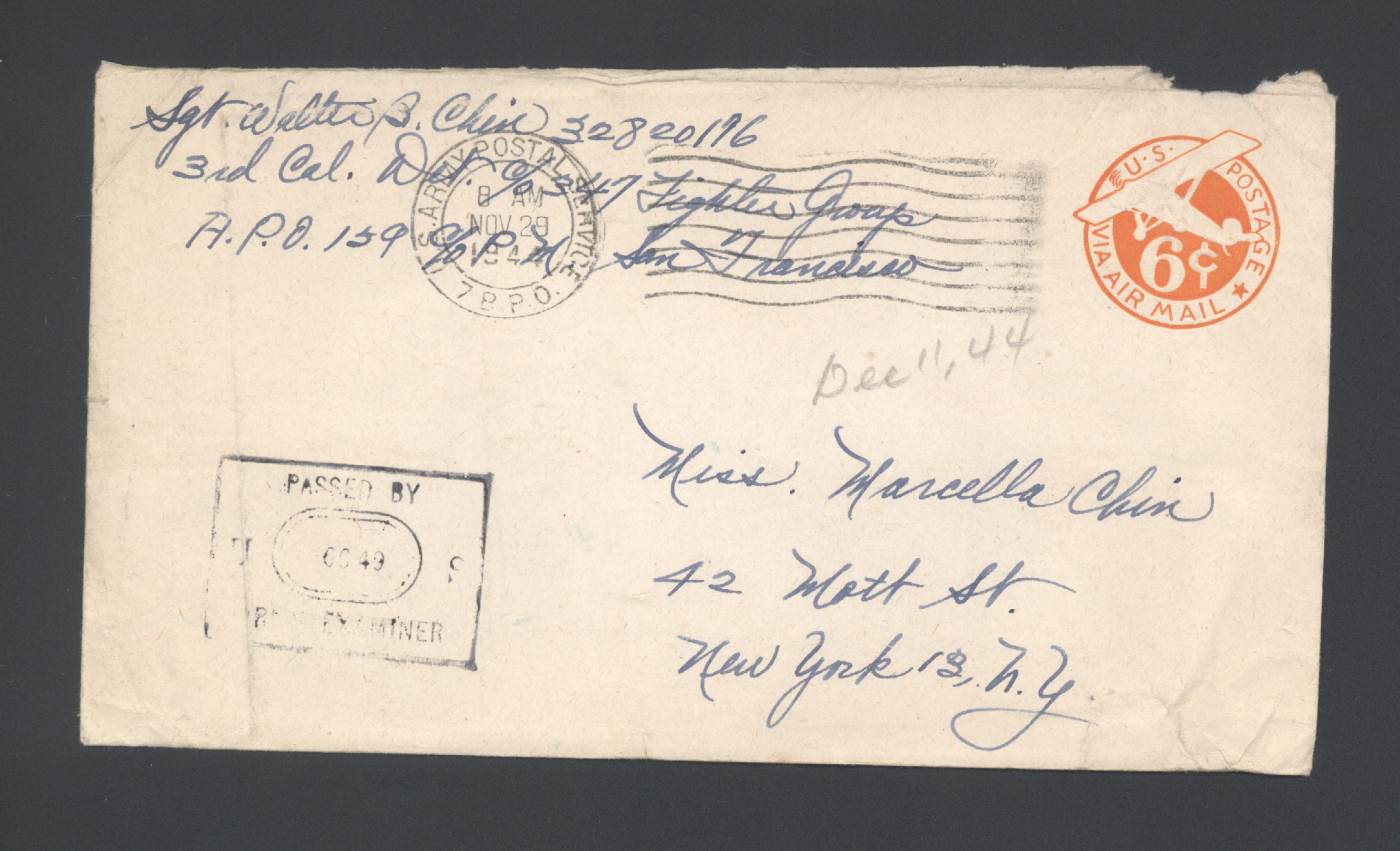 Sgt. Walter B. Chin 32820176
3rd Cal. Det. c/o 347 Fighter Group
A.P.O. 159 c/o P.M. San Francisco
U.S. ARMY POSTAL SERVICE
8 AM
NOV 29
1944
7 B.P.O.
U.S. POSTAGE
6¢
VIA AIR MAIL
Dec 11, 44
PASSED BY
U S
ARMY EXAMINER
Miss. Marcella Chin
42 Mott St.
New York 13, N.Y.